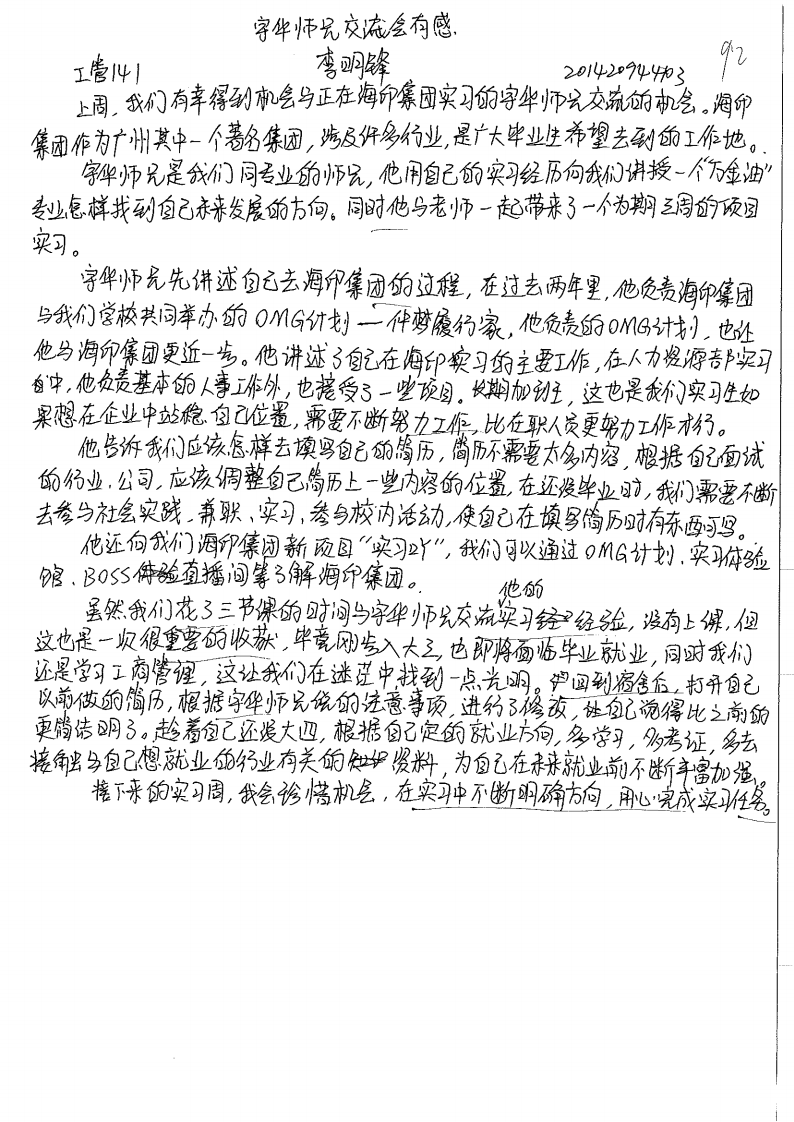 宇华师兄交流会有感.
李明锋
工管141 201420944403 92
上周,我们有幸得到机会与正在海印集团实习的宇华师兄交流的机会。海印
集团作为广州其中一个著名集团,涉及许多行业,是广大毕业生希望去到的工作地。
宇华师兄是我们同专业的师兄,他用自己的实习经历向我们讲授一个“万金油”
专业怎样找到自己未来发展的方向。同时他与老师一起带来了一个为期三周的项目
实习。
宇华师兄先讲述自己去海印集团的过程,在过去两年里,他负责海印集团
与我们学校共同举办的OMG计划——伴梦履行家,他负责的OMG计划,也让
他与海印集团更近一步。他讲述了自己在海印实习的主要工作,在人力资源部实习
中,他负责基本的人事工作外,也接受了一些项目。长期加班,这也是我们实习生如
果想在企业中站稳自己位置,需要不断努力工作,比在职人员更努力工作才行。
他告诉我们应该怎样去填写自己的简历,简历不需要太多内容,根据自己面试
的行业、公司,应该调整自己简历上一些内容的位置,在还没毕业时,我们需要不断
去参与社会实践、兼职、实习、参与校内活动,使自己在填写简历时有东西可写。
他还向我们海印集团新项目“实习吖”,我们可以通过OMG计划、实习体验
馆、BOSS体验直播间等了解海印集团。
虽然我们花了三节课的时间与宇华师兄交流他的实习经验,没有上课,但
这也是一次很重要的收获,毕竟刚步入大三,也即将面临毕业就业,同时我们
还是学习工商管理,这让我们在迷茫中找到一点光明。回到宿舍后,打开自己
以前做的简历,根据宇华师兄说的注意事项,进行了修改,让自己觉得比之前的
更简洁明了。趁着自己还没大四,根据自己定的就业方向,多学习,多考证,多去
接触与自己想就业的行业有关的资料,为自己在未来就业前不断丰富加强。
接下来的实习周,我会珍惜机会,在实习中不断明确方向,用心完成实习任务。